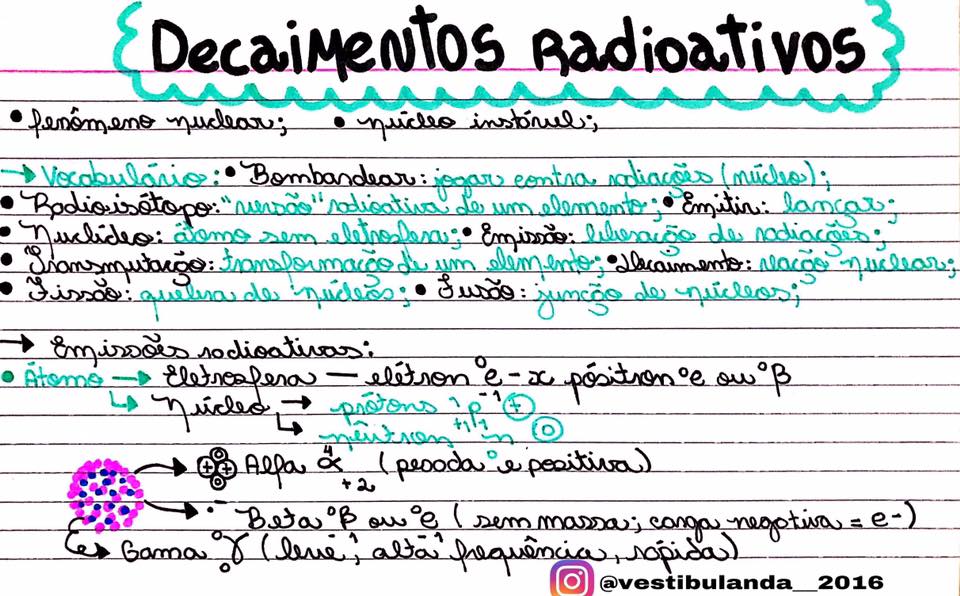 Decaimentos Radioativos
• fenômeno nuclear; • núcleo instável;
→ Vocabulário: • Bombardear: jogar contra radiações (núcleo);
• Radioisótopo: "versão" radioativa de um elemento; • Emitir: lançar;
• Nuclídeo: átomo sem eletrosfera; • Emissão: liberação de radiações;
• Transmutação: transformação de um elemento; • Decaimento: reação nuclear;
• Fissão: quebra de núcleos; • Fusão: junção de núcleos;
→ Emissões radioativas:
• Átomo → Eletrosfera — elétron ⁰e - x pósitron ⁰e ou ⁰β
↳ Núcleo → prótons ¹p ⁻¹ ⊕
↳ nêutron ¹n ⓪
Alfa ⁴α +2 (pesada e positiva)
Beta ⁰β ou ⁰e (sem massa; carga negativa = e-)
Gama ⁰γ₀ (leve, alta frequência, rápida)
@vestibulanda__2016